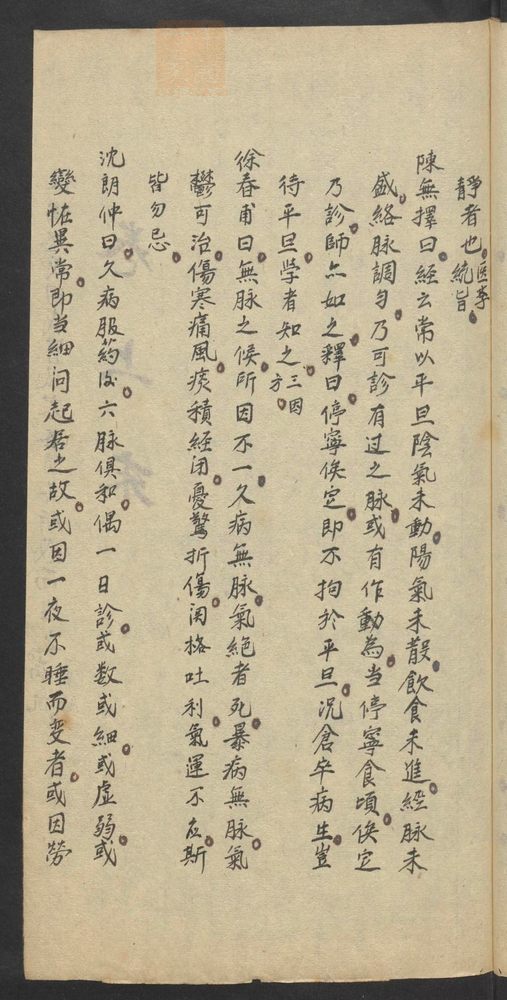 静者也医学統旨
陳無擇曰經云常以平旦陰氣未動陽氣未散飲食未進經脉未
盛絡脉調匀乃可診有过之脉或有作動為当停寧食頃俟定
乃診師亦如之釋曰停寧俟定即不拘於平旦况倉卒病生豈
待平旦学者知之三因方
徐春甫曰無脉之候所因不一久病無脉氣絕者死暴病無脉氣
鬱可治傷寒痛風痰積經闭憂驚折傷関格吐利氣運不应斯
皆勿忌
沈朗仲曰久病服药后六脉俱和偶一日診或数或細或虚弱或
變怪異常即当細问起居之故或因一夜不睡而变者或因勞